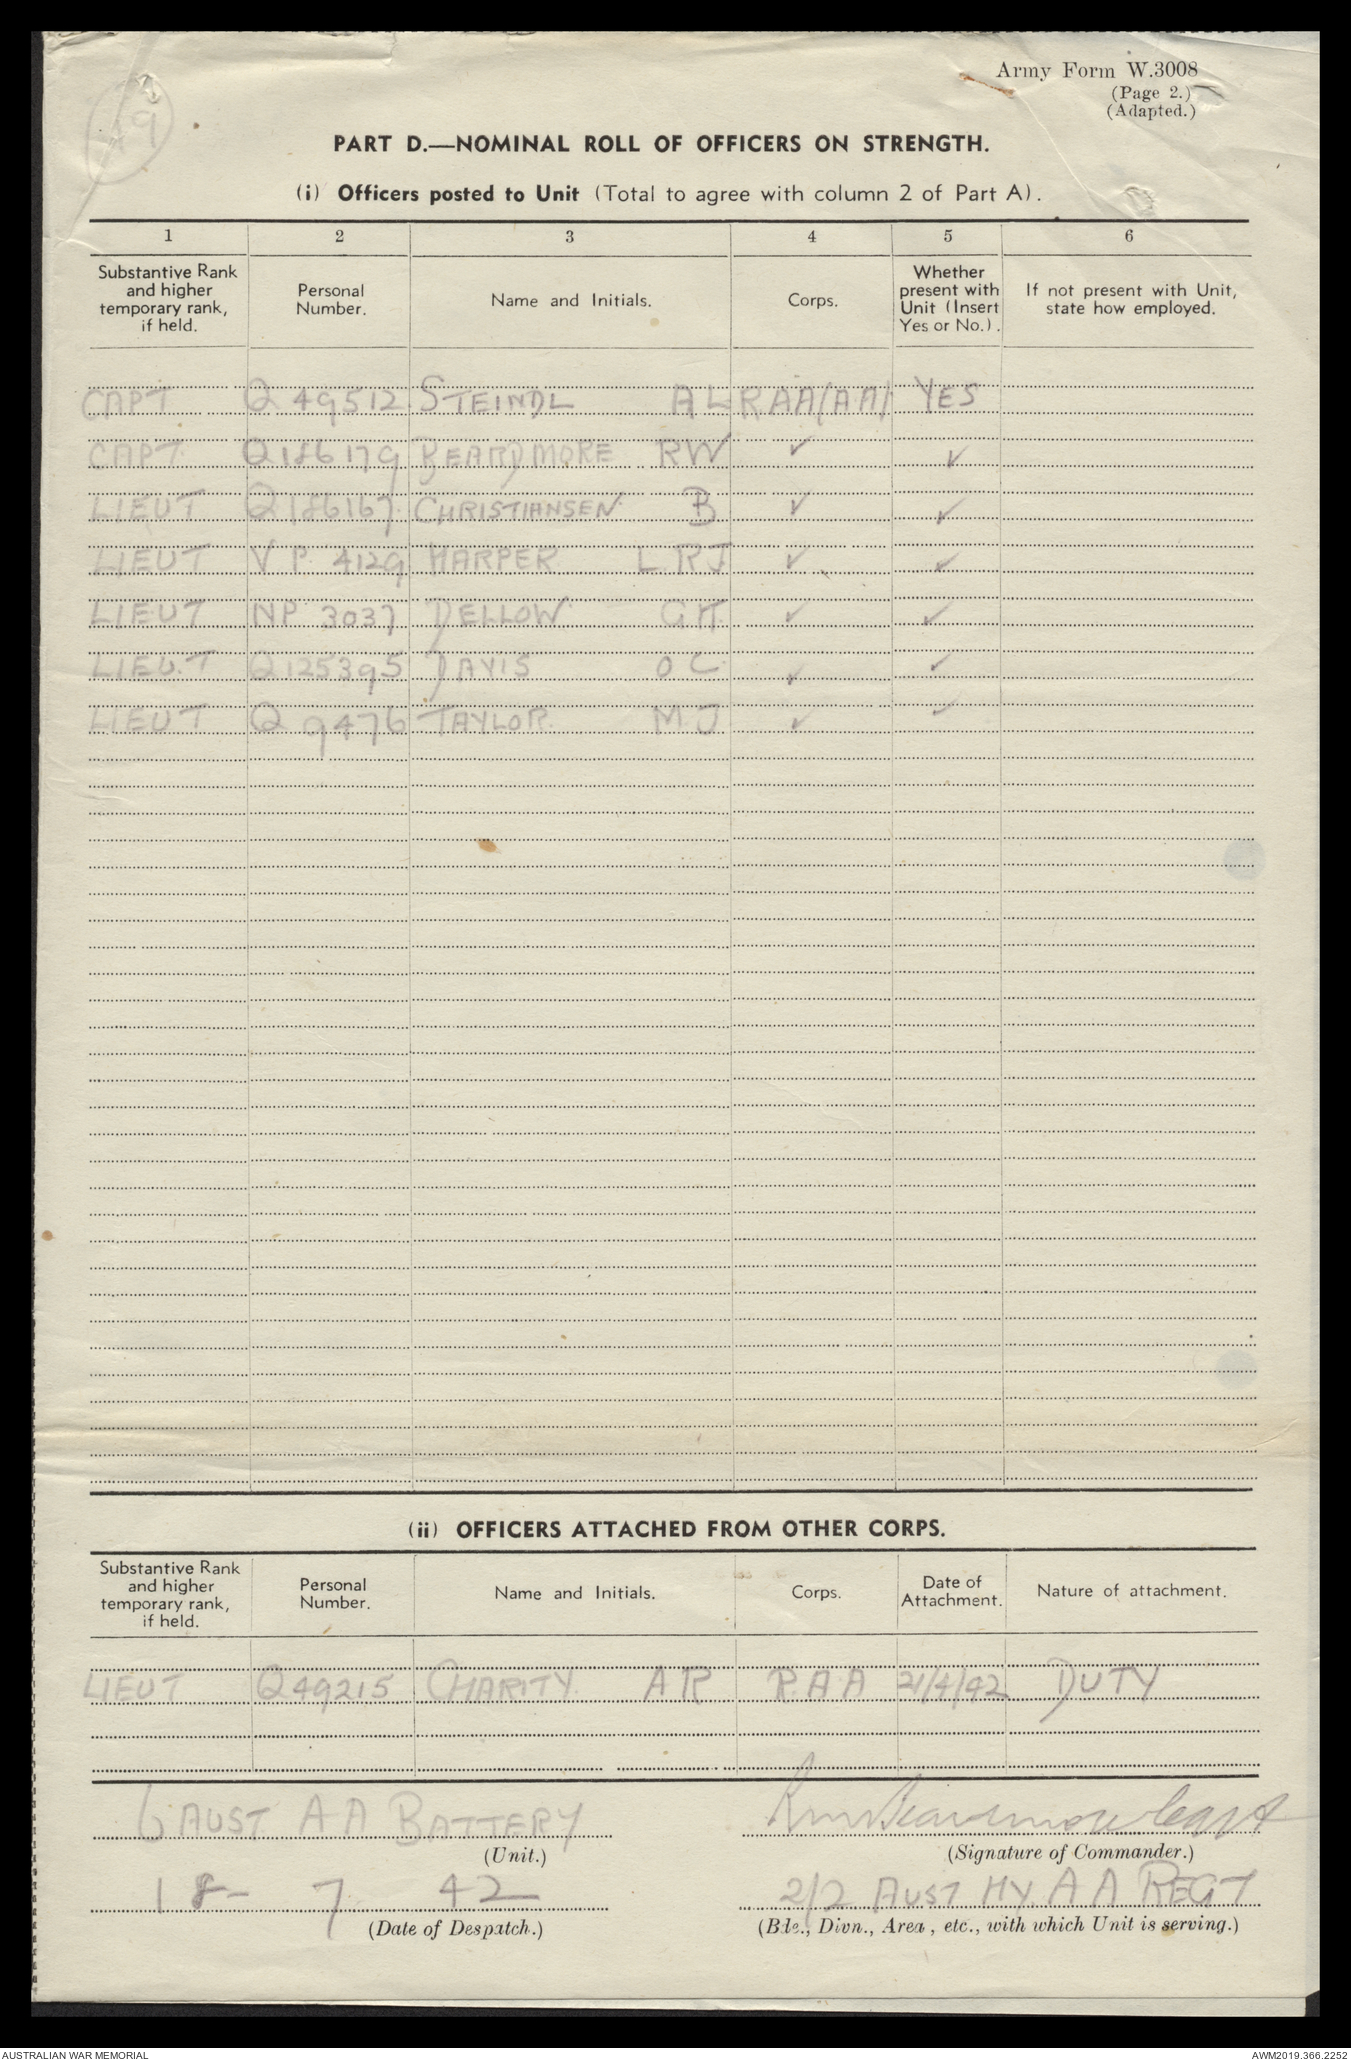 49
Army Form W.3008
(Page 2.)
(Adapted.)
PART D.—NOMINAL ROLL OF OFFICERS ON STRENGTH.
(i) Officers posted to Unit (Total to agree with column 2 of Part A).
1 2 3 4 5 6
Substantive Rank and higher temporary rank, if held. Personal Number. Name and Initials. Corps. Whether present with Unit (Insert Yes or No.). If not present with Unit, state how employed.
CAPT Q 49512 STEINDL A L RAA(AA) YES
CAPT Q186179 BEARDMORE RW ✓ ✓
LIEUT Q186167 CHRISTIANSEN B ✓ ✓
LIEUT V P 4129 HARPER L RJ ✓ ✓
LIEUT NP 3037 DELLOW G H ✓ ✓
LIEUT Q125395 DAVIS O C ✓ ✓
LIEUT Q 9476 TAYLOR M J ✓ ✓
(ii) OFFICERS ATTACHED FROM OTHER CORPS.
Substantive Rank and higher temporary rank, if held. Personal Number. Name and Initials. Corps. Date of Attachment. Nature of attachment.
LIEUT Q49215 CHARITY A R R.A.A 21/4/42 DUTY
6 AUST A A BATTERY
Beardmore Capt
(Unit.) (Signature of Commander.)
18- 7 42 2/2 AUST HY. A A REGT
(Date of Despatch.) (Bde., Divn., Area, etc., with which Unit is serving.)
AUSTRALIAN WAR MEMORIAL AWM2019.366.2252